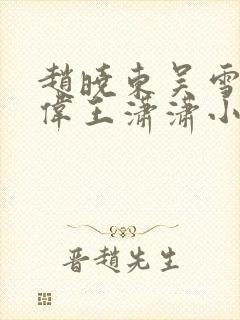 趙曉東吳雪
偉王瀟瀟小
晋趙先生